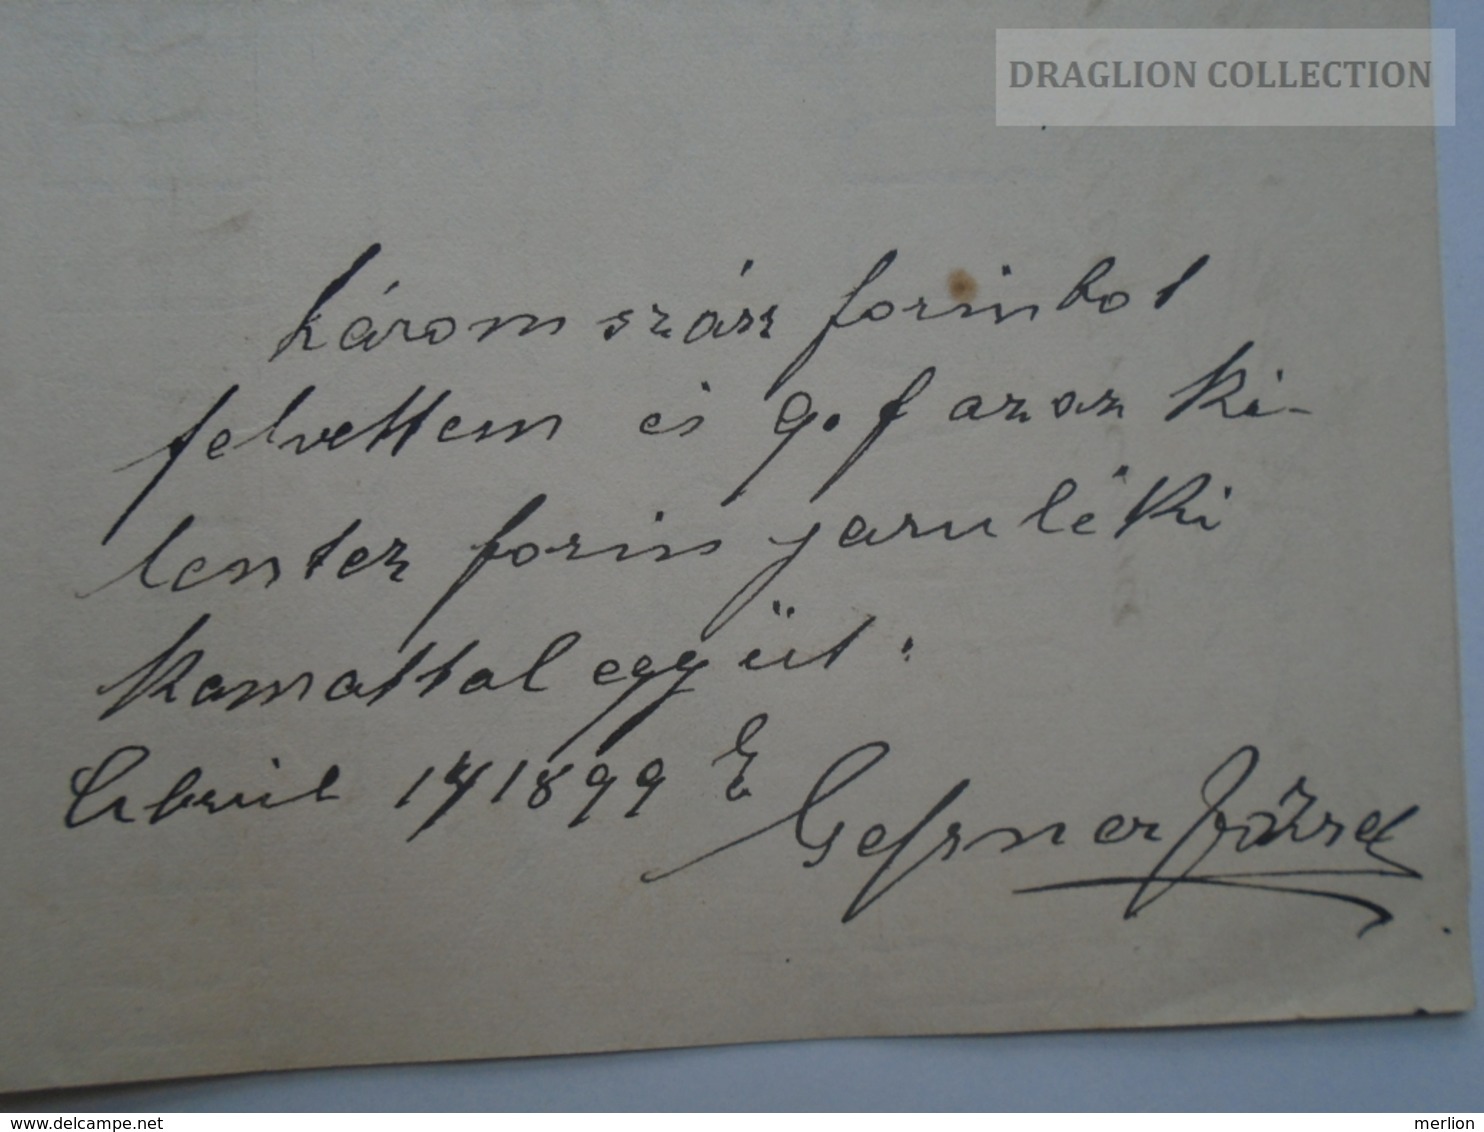 DRAGLION COLLECTION
három száz forintot
felvettem és 9.f azaz ki-
lentez forin jaruléki
kamattal együt.
April 14/1899
Gessner József
www.delcampe.net
merlion